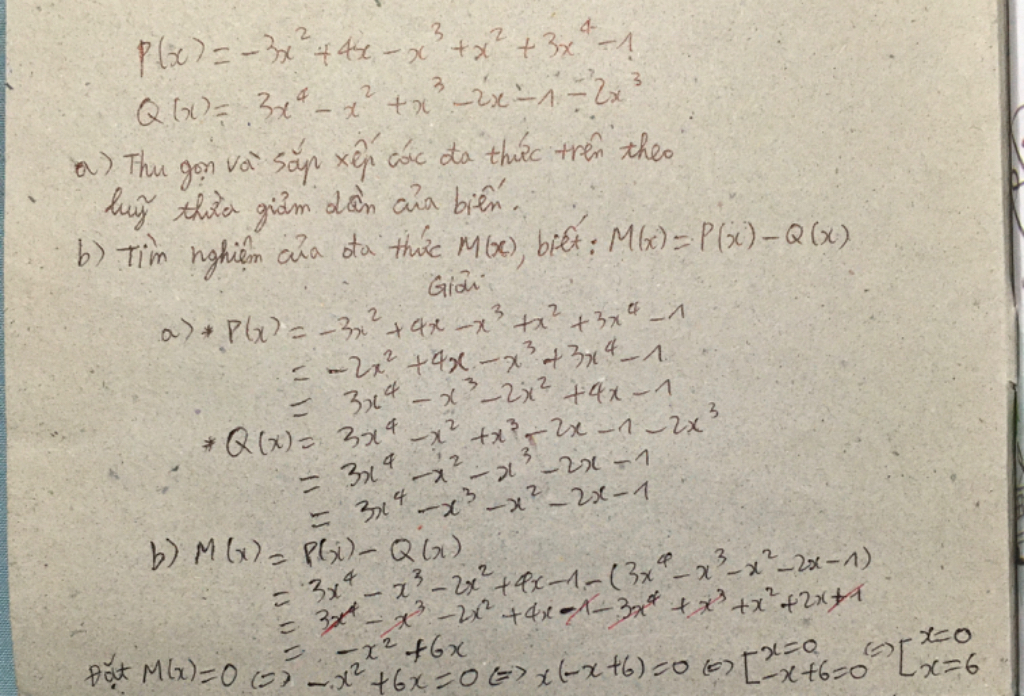 P(x) = -3x² + 4x - x³ + x² + 3x⁴ - 1
Q(x) = 3x⁴ - x² + x³ - 2x - 1 - 2x³
a) Thu gọn và sắp xếp các đa thức trên theo
luỹ thừa giảm dần của biến.
b) Tìm nghiệm của đa thức M(x), biết: M(x) = P(x) - Q(x)
Giải
a) * P(x) = -3x² + 4x - x³ + x² + 3x⁴ - 1
= -2x² + 4x - x³ + 3x⁴ - 1
= 3x⁴ - x³ - 2x² + 4x - 1
* Q(x) = 3x⁴ - x² + x³ - 2x - 1 - 2x³
= 3x⁴ - x² - x³ - 2x - 1
= 3x⁴ - x³ - x² - 2x - 1
b) M(x) = P(x) - Q(x)
= 3x⁴ - x³ - 2x² + 4x - 1 - (3x⁴ - x³ - x² - 2x - 1)
= 3x⁴ - x³ - 2x² + 4x - 1 - 3x⁴ + x³ + x² + 2x + 1
= -x² + 6x
Đặt M(x) = 0 <=> -x² + 6x = 0 <=> x(-x + 6) = 0 <=> [x = 0 -x + 6 = 0 <=> [x = 0 x = 6